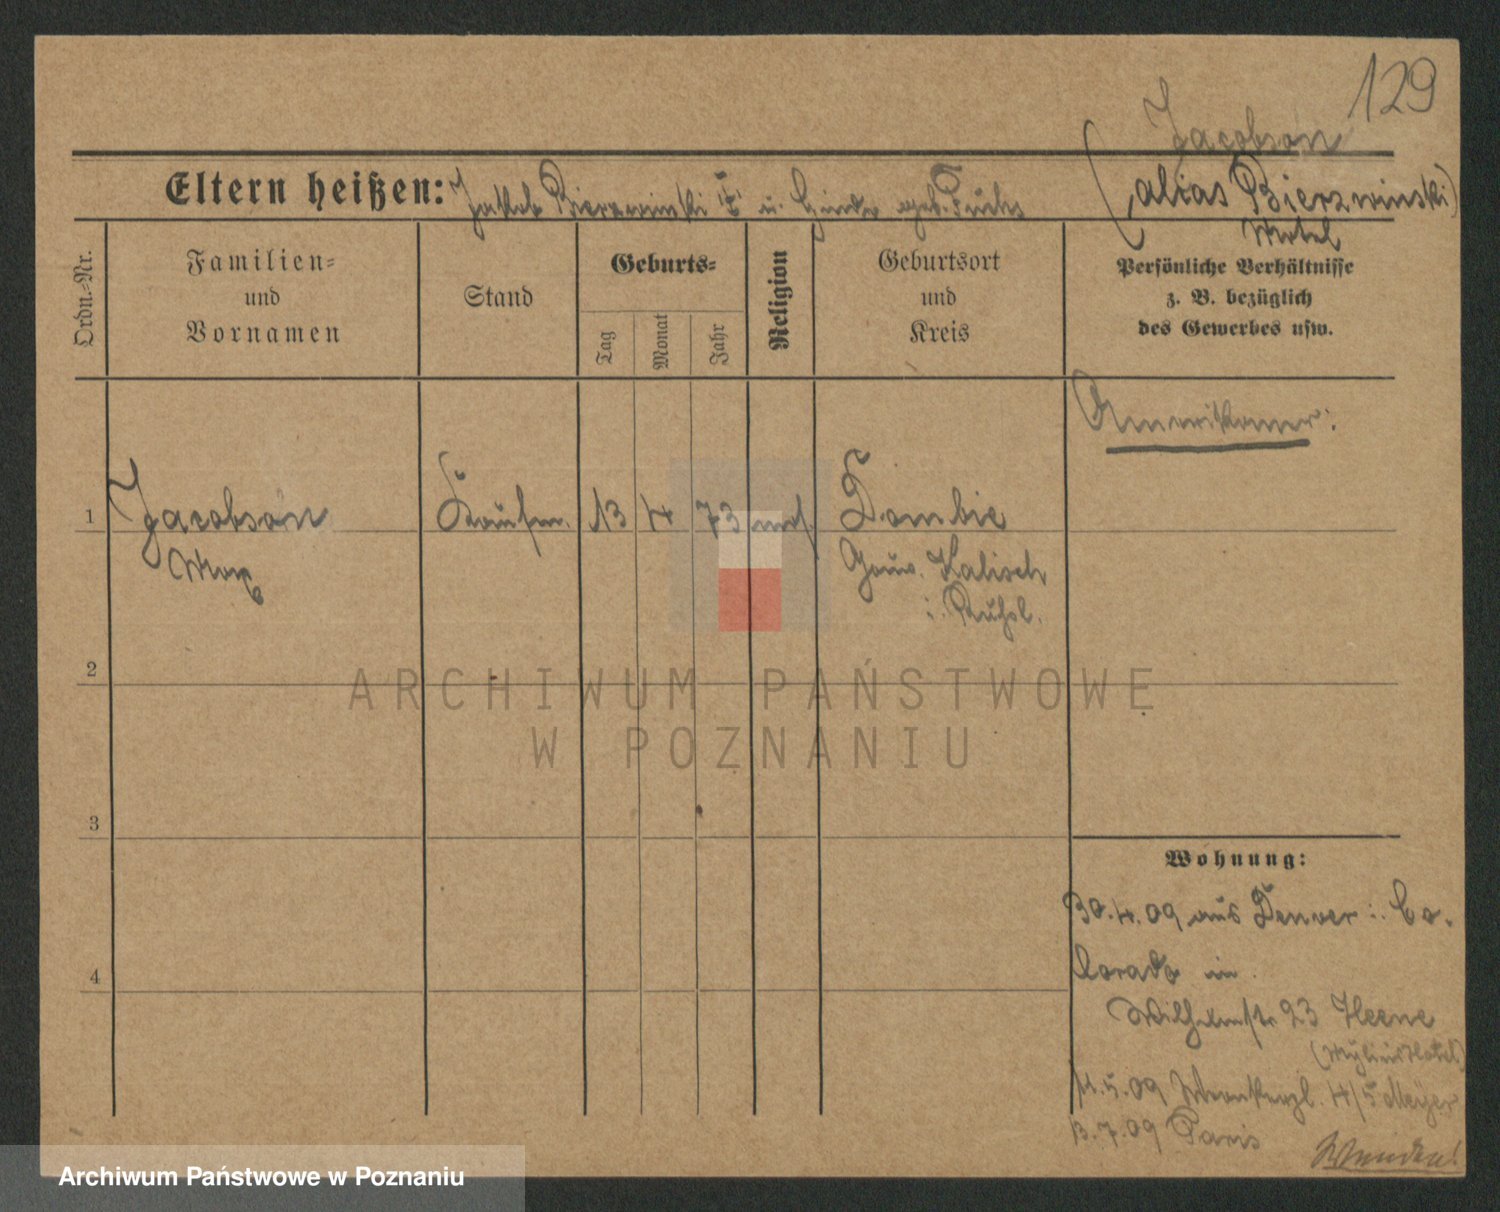 129
Jacobson
Eltern heißen: Jakob Bierzwinski u. Hinde geb. Fuchs
(alias Bierzwinski)
Motel
Ordn.-Nr.
Familien-
und
Vornamen
Stand
Geburts-
Tag
Monat
Jahr
Religion
Geburtsort
und
Kreis
Persönliche Verhältnisse
z. B. bezüglich
des Gewerbes usw.
Amerikaner!
1 Jacobson Kaufm. 13 4 73 mos. Dombie
Max Gouv. Kalisch
i. Rußl.
2
3
4
Wohnung:
30.4.09 aus Denver i. Co-
lorado in
Wilhelmstr. 23 Heene
(Mylius Hotel)
11.5.09 4/5 Meyer
13.7.09 Paris
ARCHIWUM PAŃSTWOWE
W POZNANIU
Archiwum Państwowe w Poznaniu